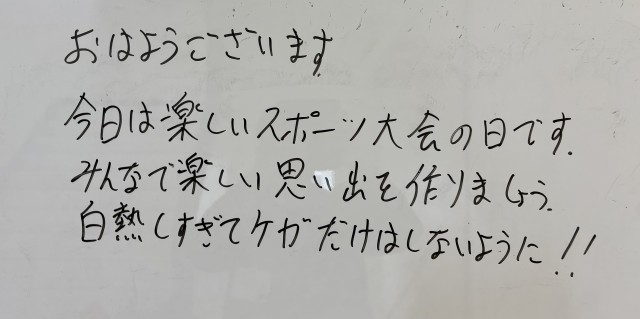 おはようございます
今日は楽しいスポーツ大会の日です.
みんなで楽しい思い出を作りましょう.
白熱しすぎてケガだけはしないように!!